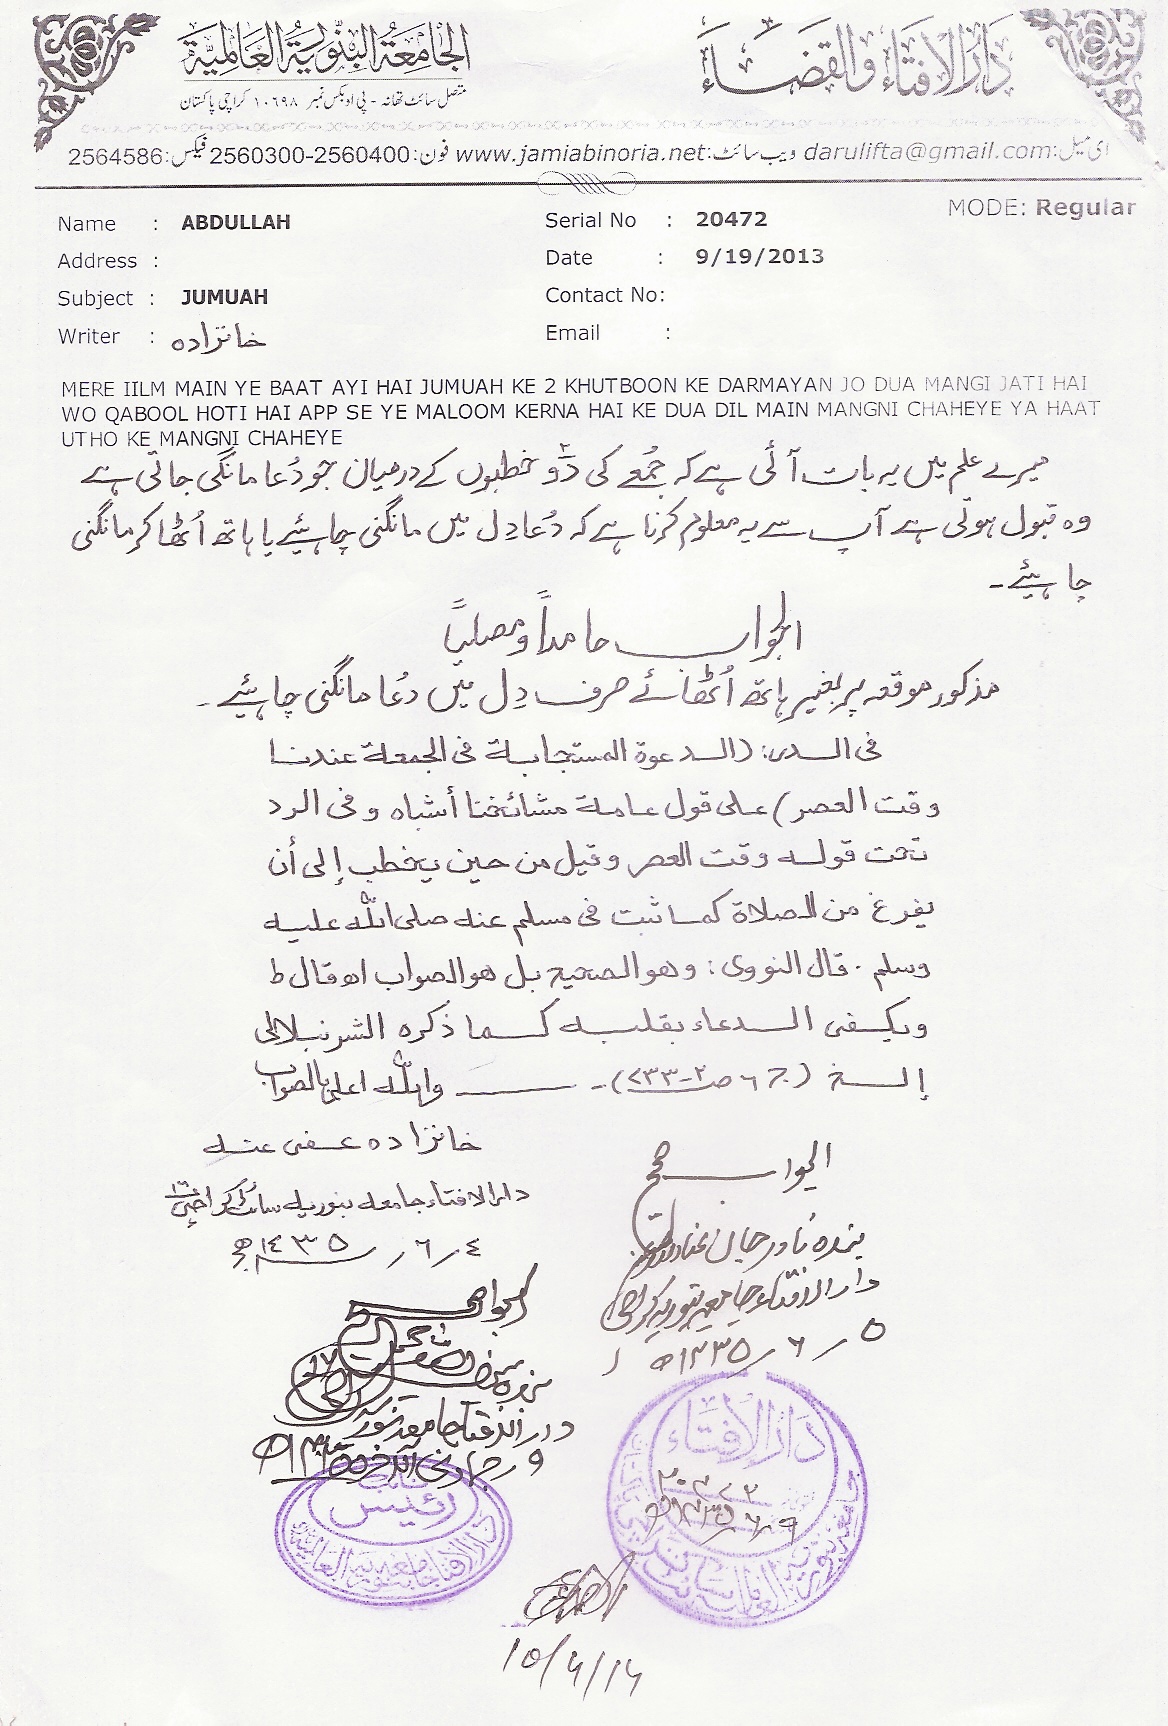 دَارُالاِفتَاء وَالقَضَاءَ
الجَامِعَةُ البِنُّورِيَةُ العَالَمِيَّة
متصل سائٹ تھانہ - پی او بکس نمبر ۱۰۶۹۸ کراچی پاکستان
ای میل:darulifta@gmail.com ویب سائٹ:www.jamiabinoria.net فون:2560300-2560400 فیکس:2564586
MODE: Regular
Name : ABDULLAH Serial No : 20472
Address : Date : 9/19/2013
Subject : JUMUAH Contact No:
Writer : خانزاده Email :
MERE IILM MAIN YE BAAT AYI HAI JUMUAH KE 2 KHUTBOON KE DARMAYAN JO DUA MANGI JATI HAI
WO QABOOL HOTI HAI APP SE YE MALOOM KERNA HAI KE DUA DIL MAIN MANGNI CHAHEYE YA HAAT
UTHO KE MANGNI CHAHEYE
میرے علم میں یہ بات آئی ہے کہ جُمعے کی دَو۲ خطبوں کے درمیان جو دُعا مانگی جاتی ہے
وہ قبول ہوتی ہے آپ سے یہ معلوم کرنا ہے کہ دُعا دِل میں مانگنی چاہیئے یا ہاتھ اُٹھا کر مانگنی
چاہیئے۔
الجواب حامداً و مصلیاً
مذکور موقعہ پر بغیر ہاتھ اُٹھائے صرف دِل میں دعُا مانگنی چاہیئے۔
فی الدر: (الدعوة المستجابة فی الجمعة عندنا
وقت العصر) علی قول عامة مشائخنا أشباه و فی الرد
تحت قوله وقت العصر وقیل من حین یخطب إلی أن
یفرغ من الصلاة کما ثبت فی مسلم عنه صلی الله علیه
وسلم. قال النووی: وهو الصحیح بل هو الصواب اھ قال ط
ویکفی الدعاء بقلبه کما ذکره الشرنبلالی
إلخ (ج۶ ص۲-۲۳۳)۔ والله اعلم بالصواب
خانزاده عفی عنه
دارالافتاء جامعه بنوریه سائٹ کراچی ۱۶
٤ / ٦ / ١٤٣٥ھ
الجواب صحیح
بنده نادر جان
دارالافتاء جامعه بنوریه کراچی
۵ / ٦ / ١٤٣٥ھ
الجواب صحیح
بنده
دارالافتاء جامعه بنوریه
٩ / جمادی الآخرة
نائب
رئیس
دارالافتاء جامعه بنوریه العالمیه
دَارُالاِفتَاء
۲۰۴۷۲
۹/۶/۱۴۳۵ھ
10/4/14